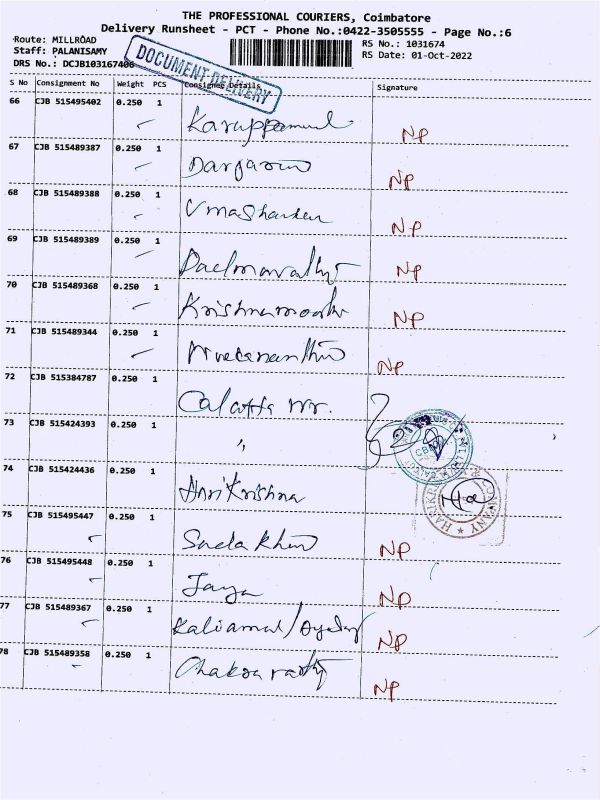 THE PROFESSIONAL COURIERS, Coimbatore
Delivery Runsheet - PCT - Phone No.:0422-3505555 - Page No.:6
Route: MILLROAD
Staff: PALANISAMY
DRS No.: DCJB103167406
RS No.: 1031674
RS Date: 01-Oct-2022
DOCUMENT DELIVERY
S No Consignment No Weight PCS Consignee Details Signature
66 CJB 515495402 0.250 1 NP
67 CJB 515489387 0.250 1 NP
68 CJB 515489388 0.250 1 Umashanker NP
69 CJB 515489389 0.250 1 NP
70 CJB 515489368 0.250 1 Krishnamoorthy NP
71 CJB 515489344 0.250 1 NP
72 CJB 515384787 0.250 1 Calcutta
73 CJB 515424393 0.250 1 "
74 CJB 515424436 0.250 1 Harikrishna
COMPANY
75 CJB 515495447 0.250 1 NP
76 CJB 515495448 0.250 1 Jaya NP
77 CJB 515489367 0.250 1 NP
78 CJB 515489358 0.250 1 NP